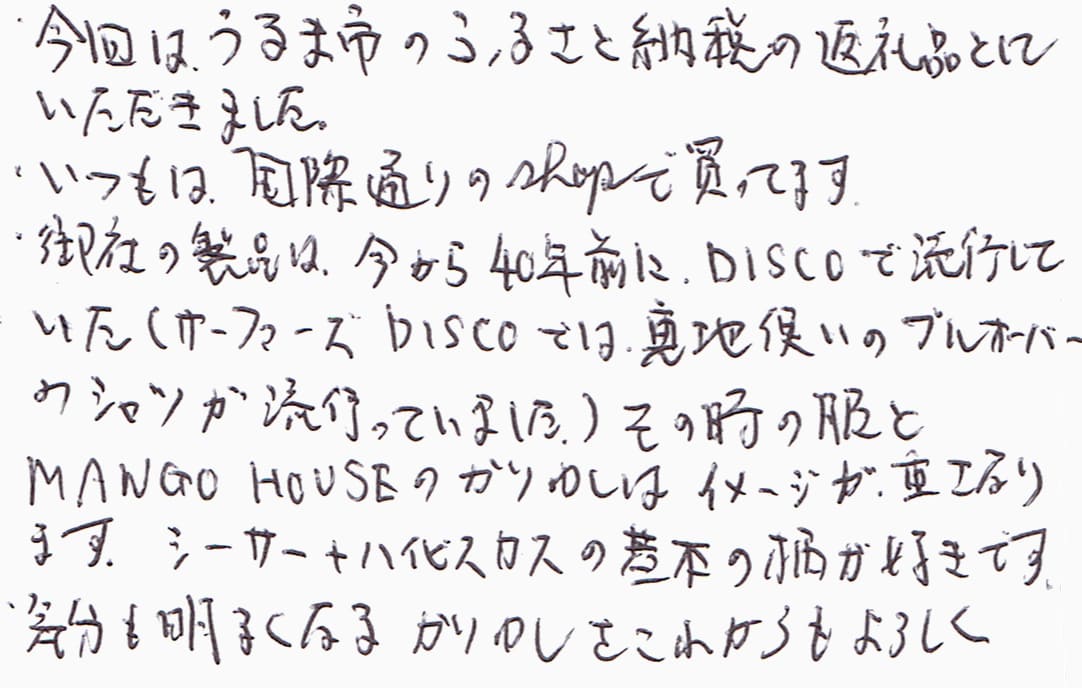 ・今回は、うるま市のふるさと納税の返礼品とに
いただきました。
・いつもは、国際通りのshopで買ってます。
・御社の製品は、今から40年前に、DISCOで流行して
いた(サーファーズDISCOでは、裏地使いのプルオーバー
のシャツが流行っていました。)その時の服と
MANGO HOUSEのかりゆしはイメージが、重なり
ます。シーサー+ハイビスカスの基本の柄が好きです。
・気分も明るくなるかりゆしをこれからもよろしく